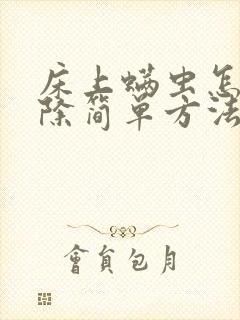 床上螨虫怎
除简单方法
會員包月